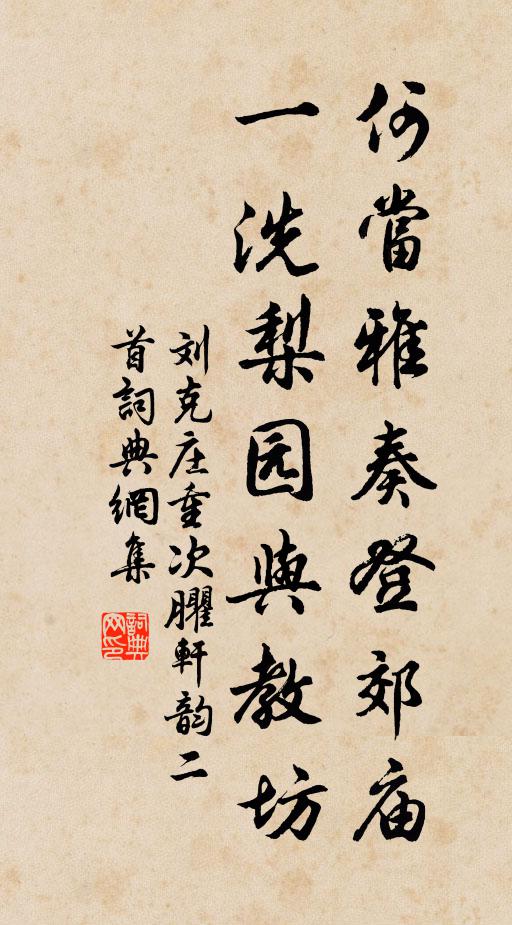 何當雅奏登郊庙
一洗梨园與教坊
刘克庄重次臞軒韵二
首詞典網集
詞典
网印